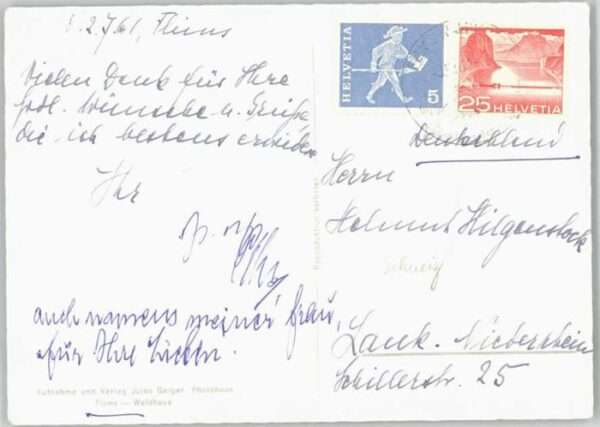 2.7.61, Flims
Vielen Dank für Ihre
frdl. Wünsche u. Grüße
die ich bestens erwidere
Ihr
auch namens meiner Frau,
für Ihre Lieben.
Aufnahme und Verlag Jules Geiger Photohaus
Flims — Waldhaus
HELVETIA
5
25 HELVETIA
Deutschland
Herrn
Helmut Hilgenstock
Schweiz
Lank-Niederrhein
Schillerstr. 25